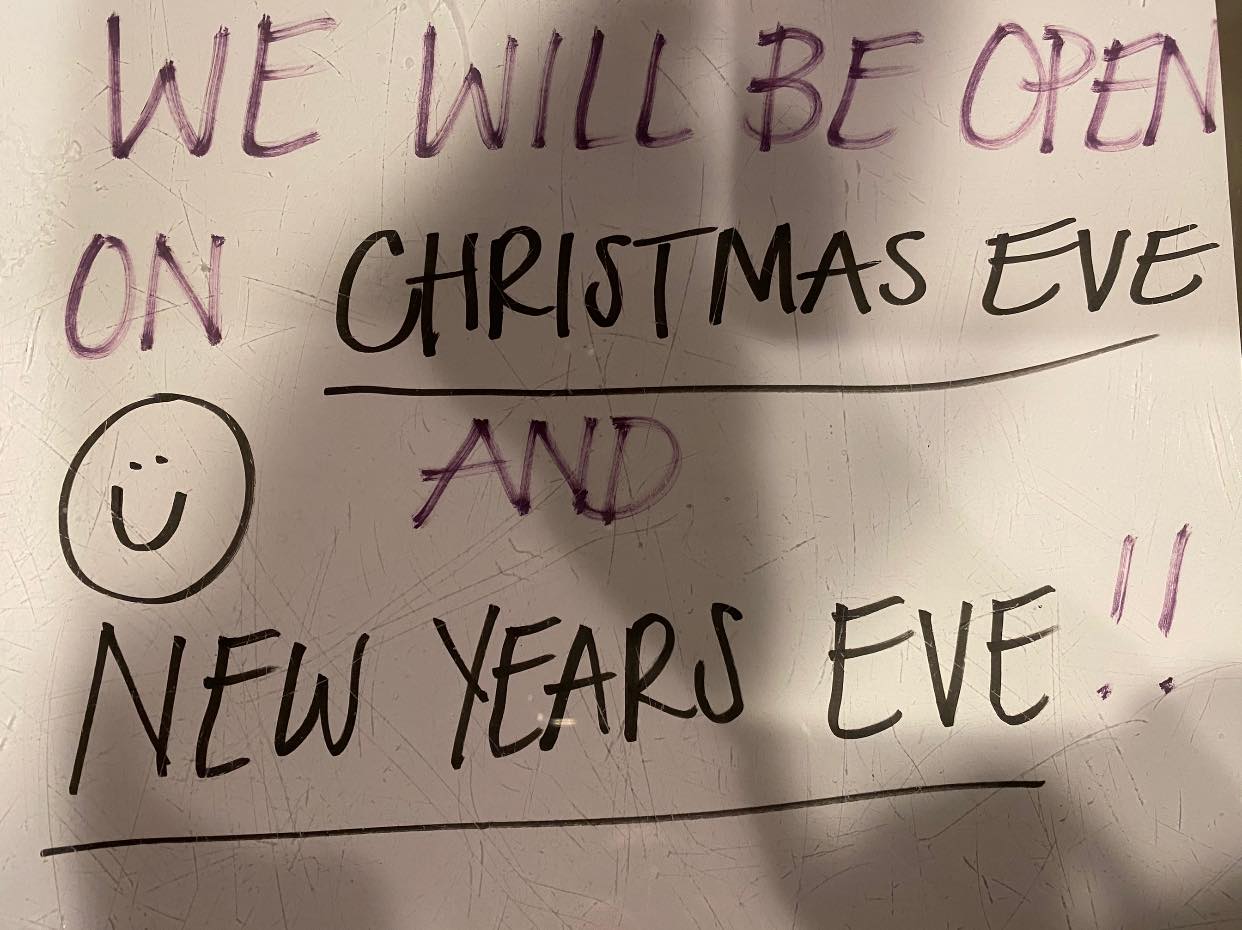 WE WILL BE OPEN
ON CHRISTMAS EVE
AND
NEW YEARS EVE!!